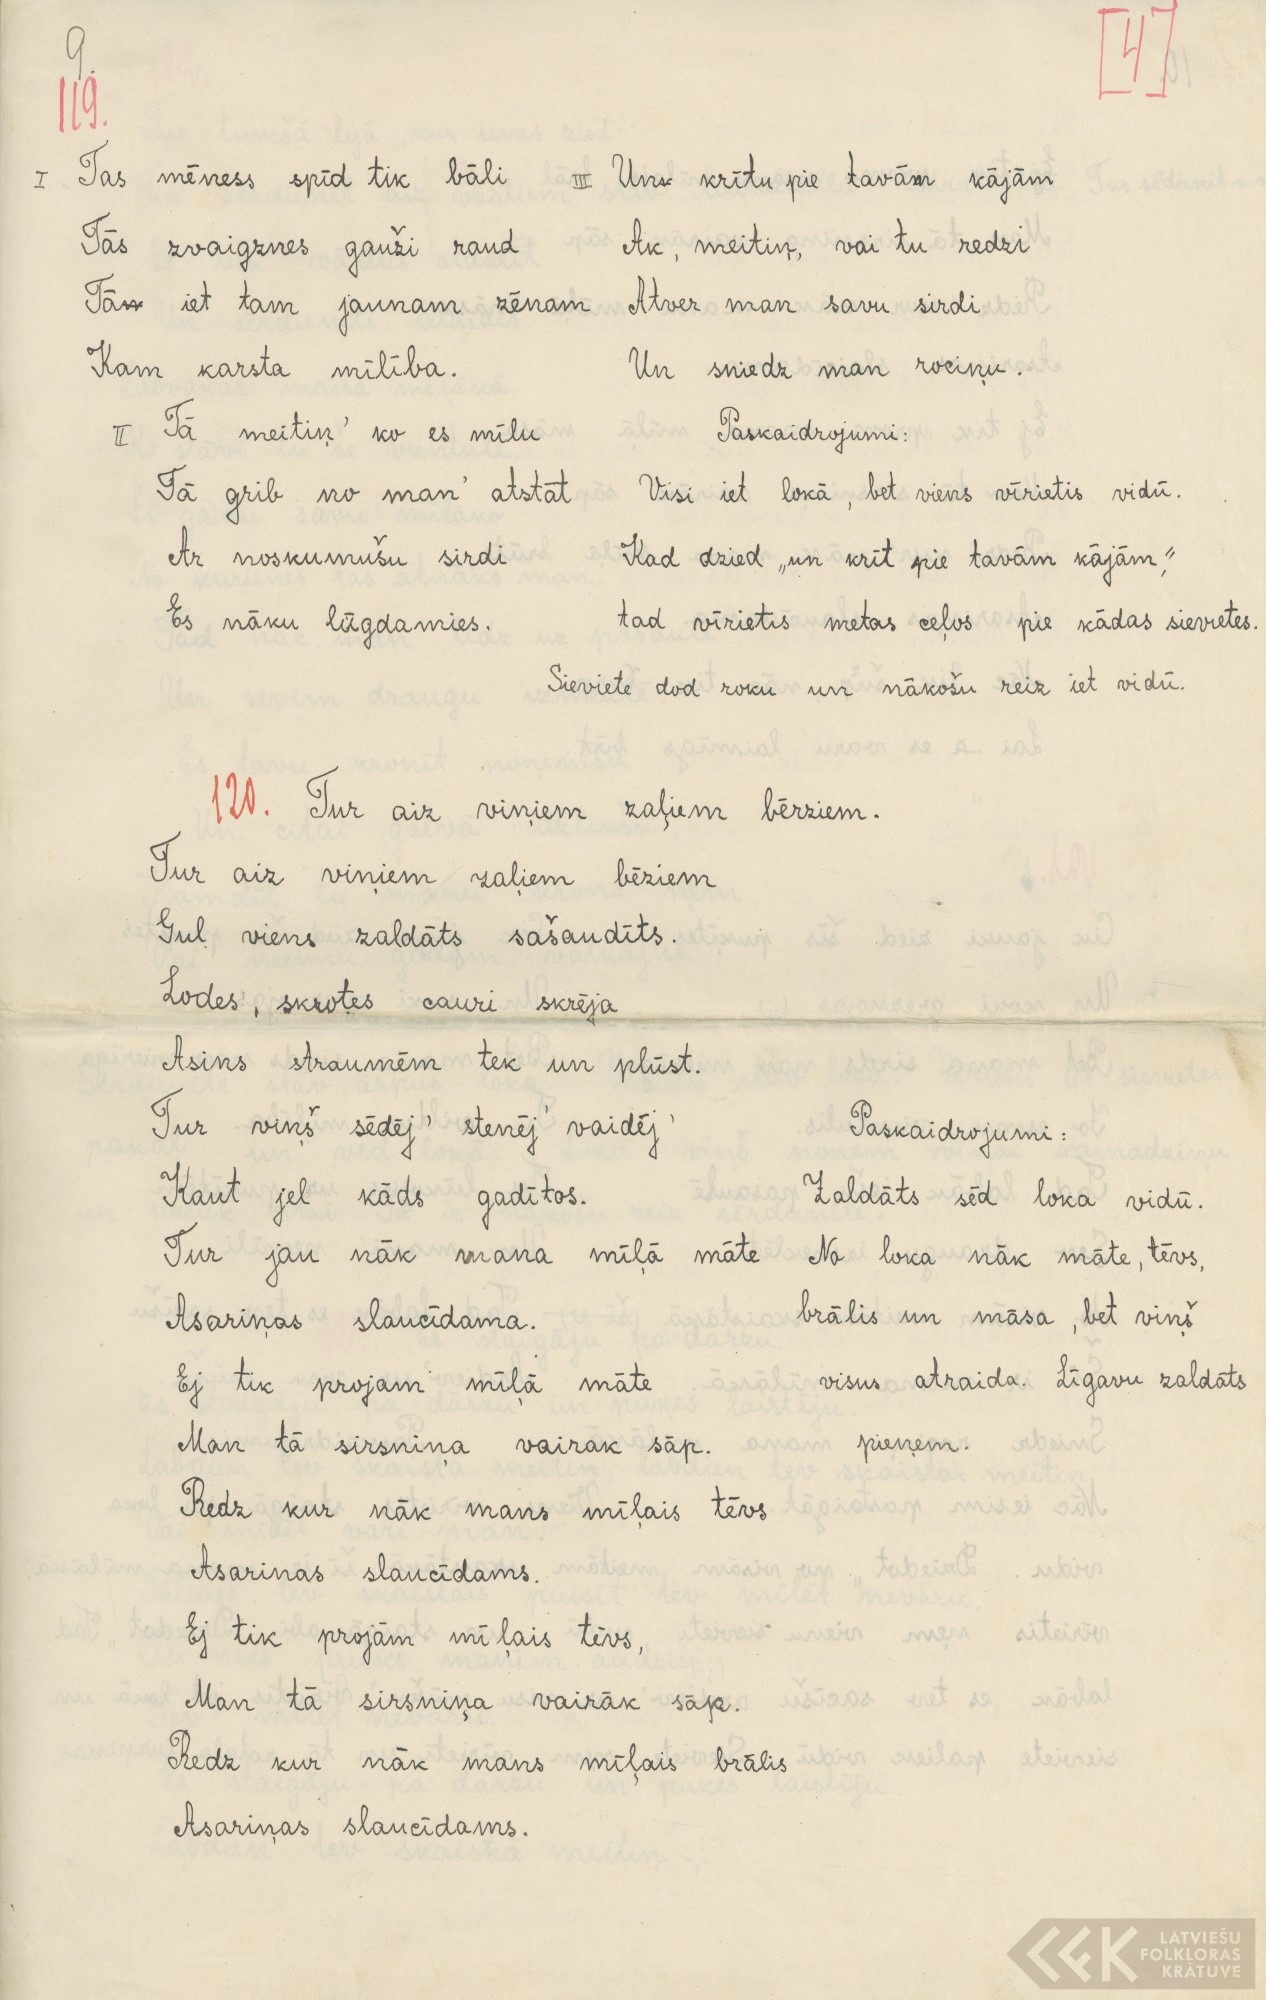 9.
[4]
119.
I Tas mēness spīd tik bāli
Tās zvaigznes gauži raud
Tā iet tam jaunam zēnam
Kam karsta mīlība.
II Tā meitiņ' ko es mīlu
Tā grib no man' atstāt
Ar noskumušu sirdi
Es nāku lūgdamies.
III Un krītu pie tavām kājām
Ak, meitiņ, vai tu redzi
Atver man savu sirdi
Un sniedz man rociņu.
Paskaidrojumi:
Visi iet lokā, bet viens vīrietis vidū.
Kad dzied „un krīt pie tavām kājām,"
tad vīrietis metas ceļos pie kādas sievietes.
Sieviete dod roku un nākošu reiz iet vidū.
120. Tur aiz viņiem zaļiem bērziem.
Tur aiz viņiem zaļiem bēziem
Guļ viens zaldāts sašaudīts.
Lodes, skrotes cauri skrēja
Asins straumēm tek un plūst.
Tur viņš sēdēj' stenēj' vaidēj'
Kaut jel kāds gadītos.
Tur jau nāk mana mīļā māte
Asariņas slaucīdama.
Ej tik projam mīļā māte
Man tā sirsniņa vairak sāp.
Redz kur nāk mans mīļais tēvs
Asarinas slaucīdams.
Ej tik projām mīļais tēvs,
Man tā sirsniņa vairāk sāp.
Redz kur nāk mans mīļais brālis
Asariņas slaucīdams.
Paskaidrojumi:
Zaldāts sēd loka vidū.
No loka nāk māte, tēvs,
brālis un māsa, bet viņš
visus atraida. Līgavu zaldāts
pieņem.
LATVIEŠU
FOLKLORAS
KRĀTUVE